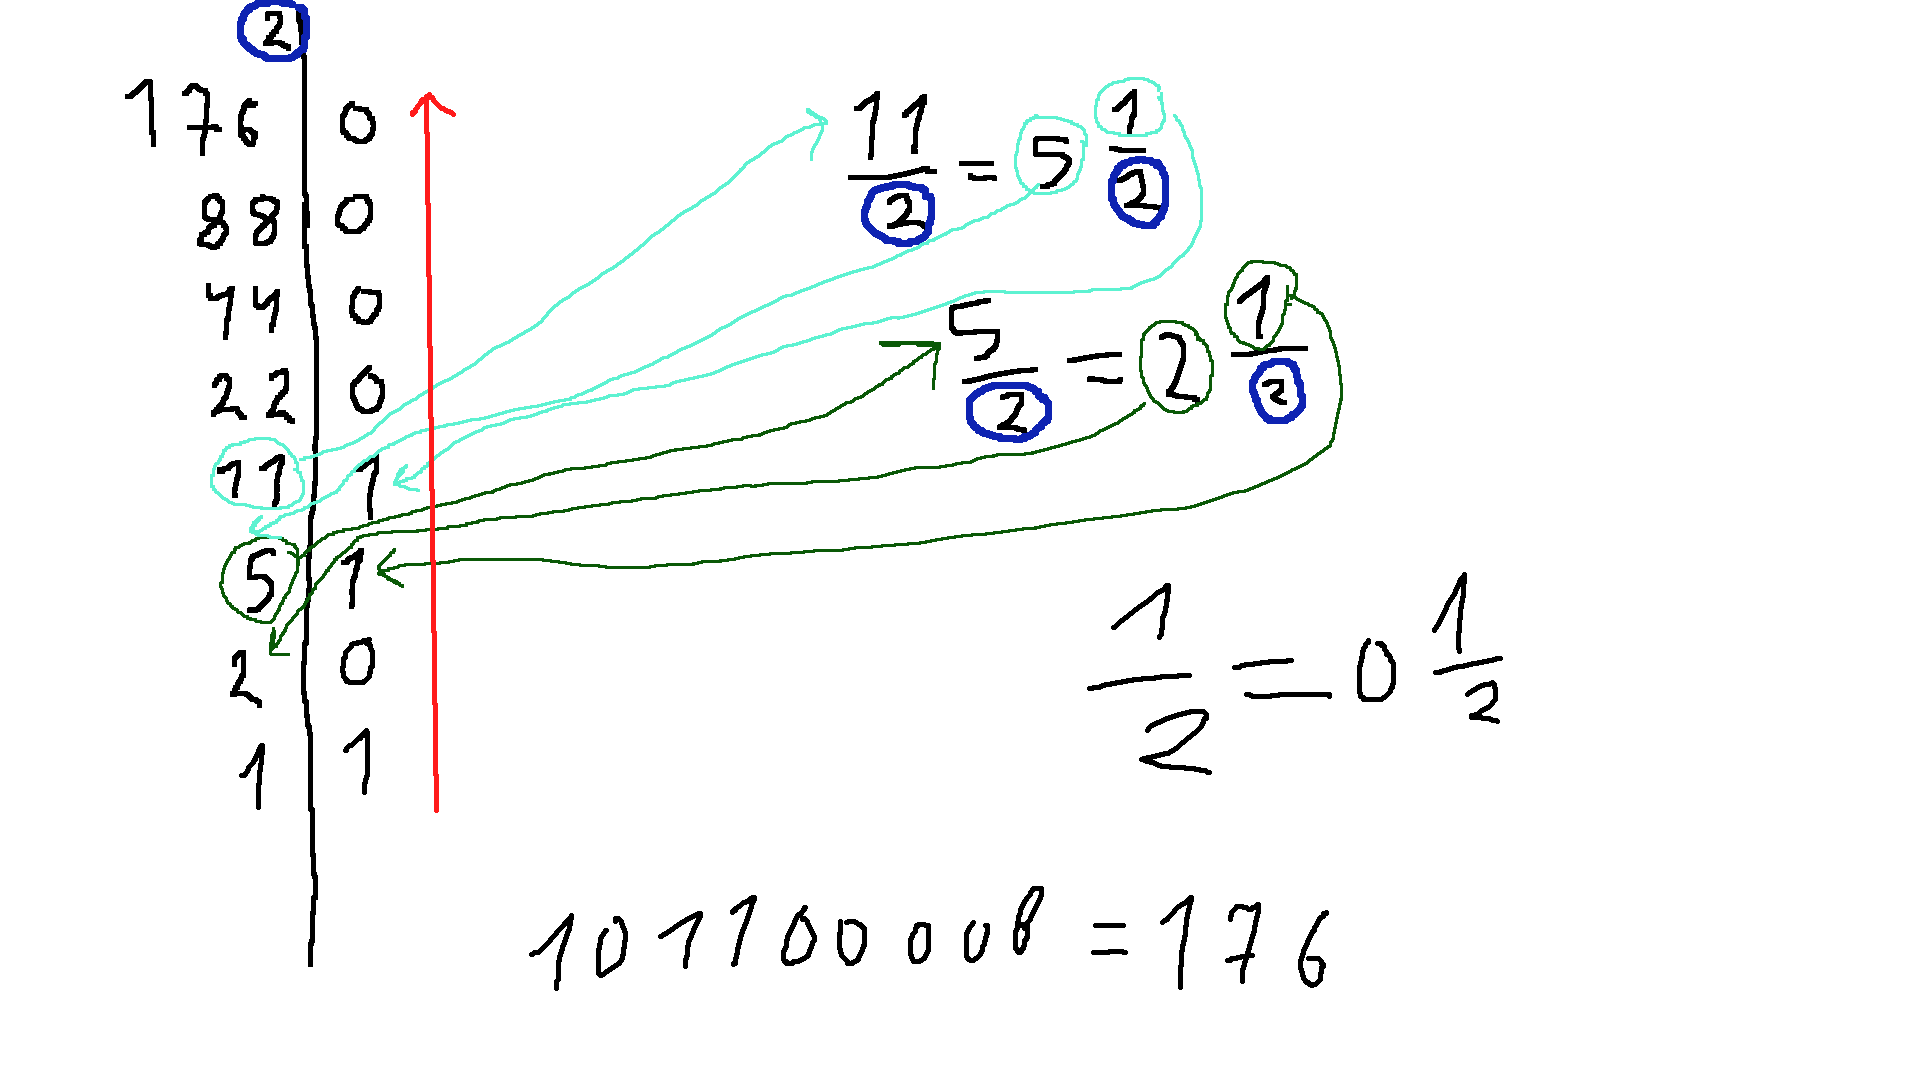 2
176 0
88 0
44 0
22 0
11 1
5 1
2 0
1 1
11/2 = 5 1/2
5/2 = 2 1/2
1/2 = 0 1/2
10110000B = 176